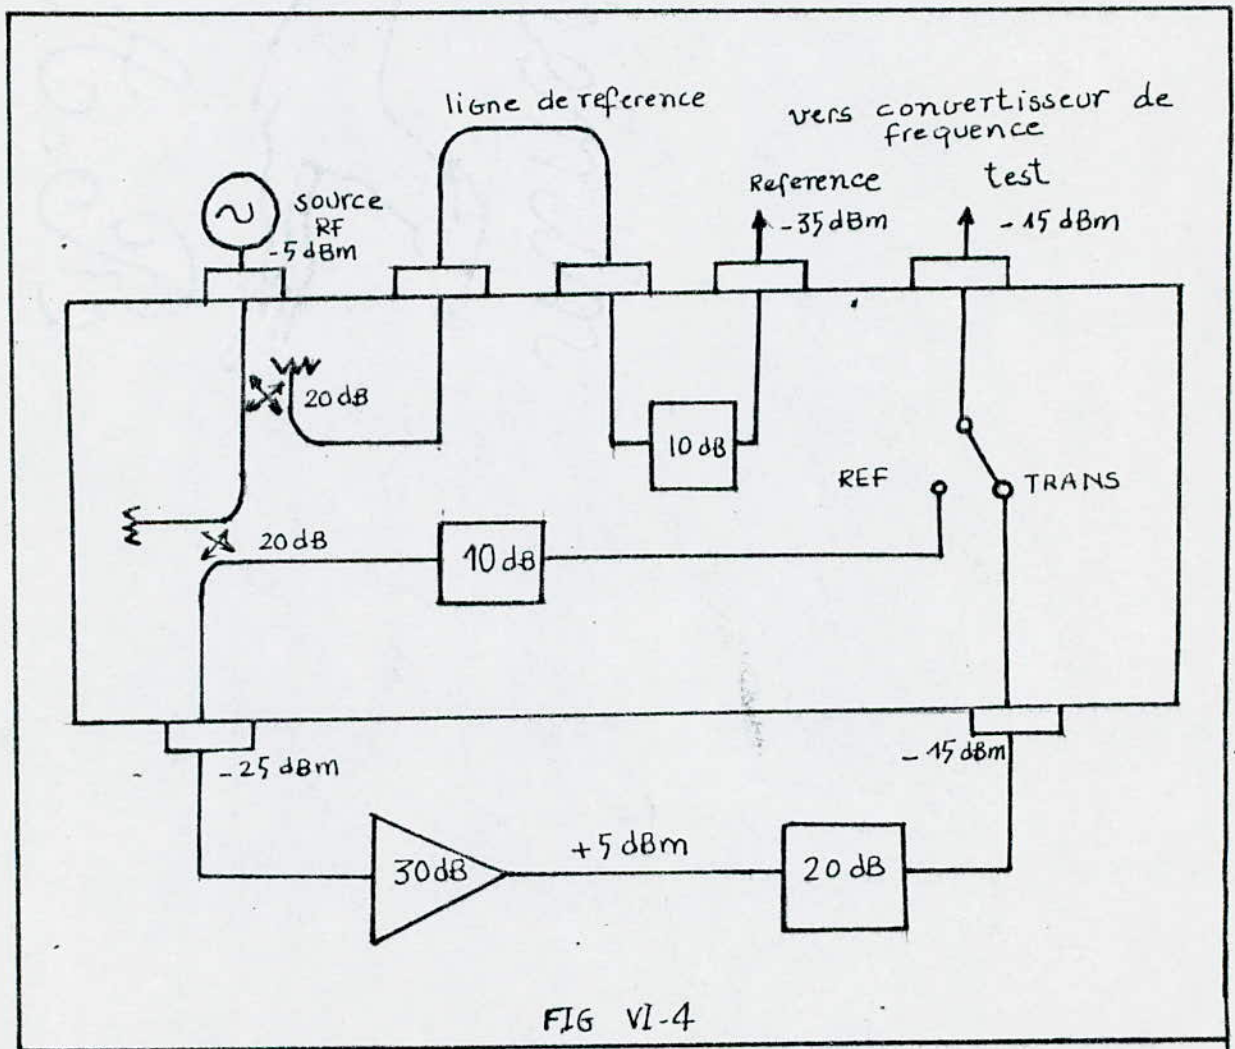 ligne de reference
vers convertisseur de
frequence
source
RF
-5 dBm
Reference
-35 dBm
test
-15 dBm
20 dB
10 dB
REF
TRANS
20 dB
10 dB
-25 dBm
-15 dBm
30 dB
+5 dBm
20 dB
FIG VI-4